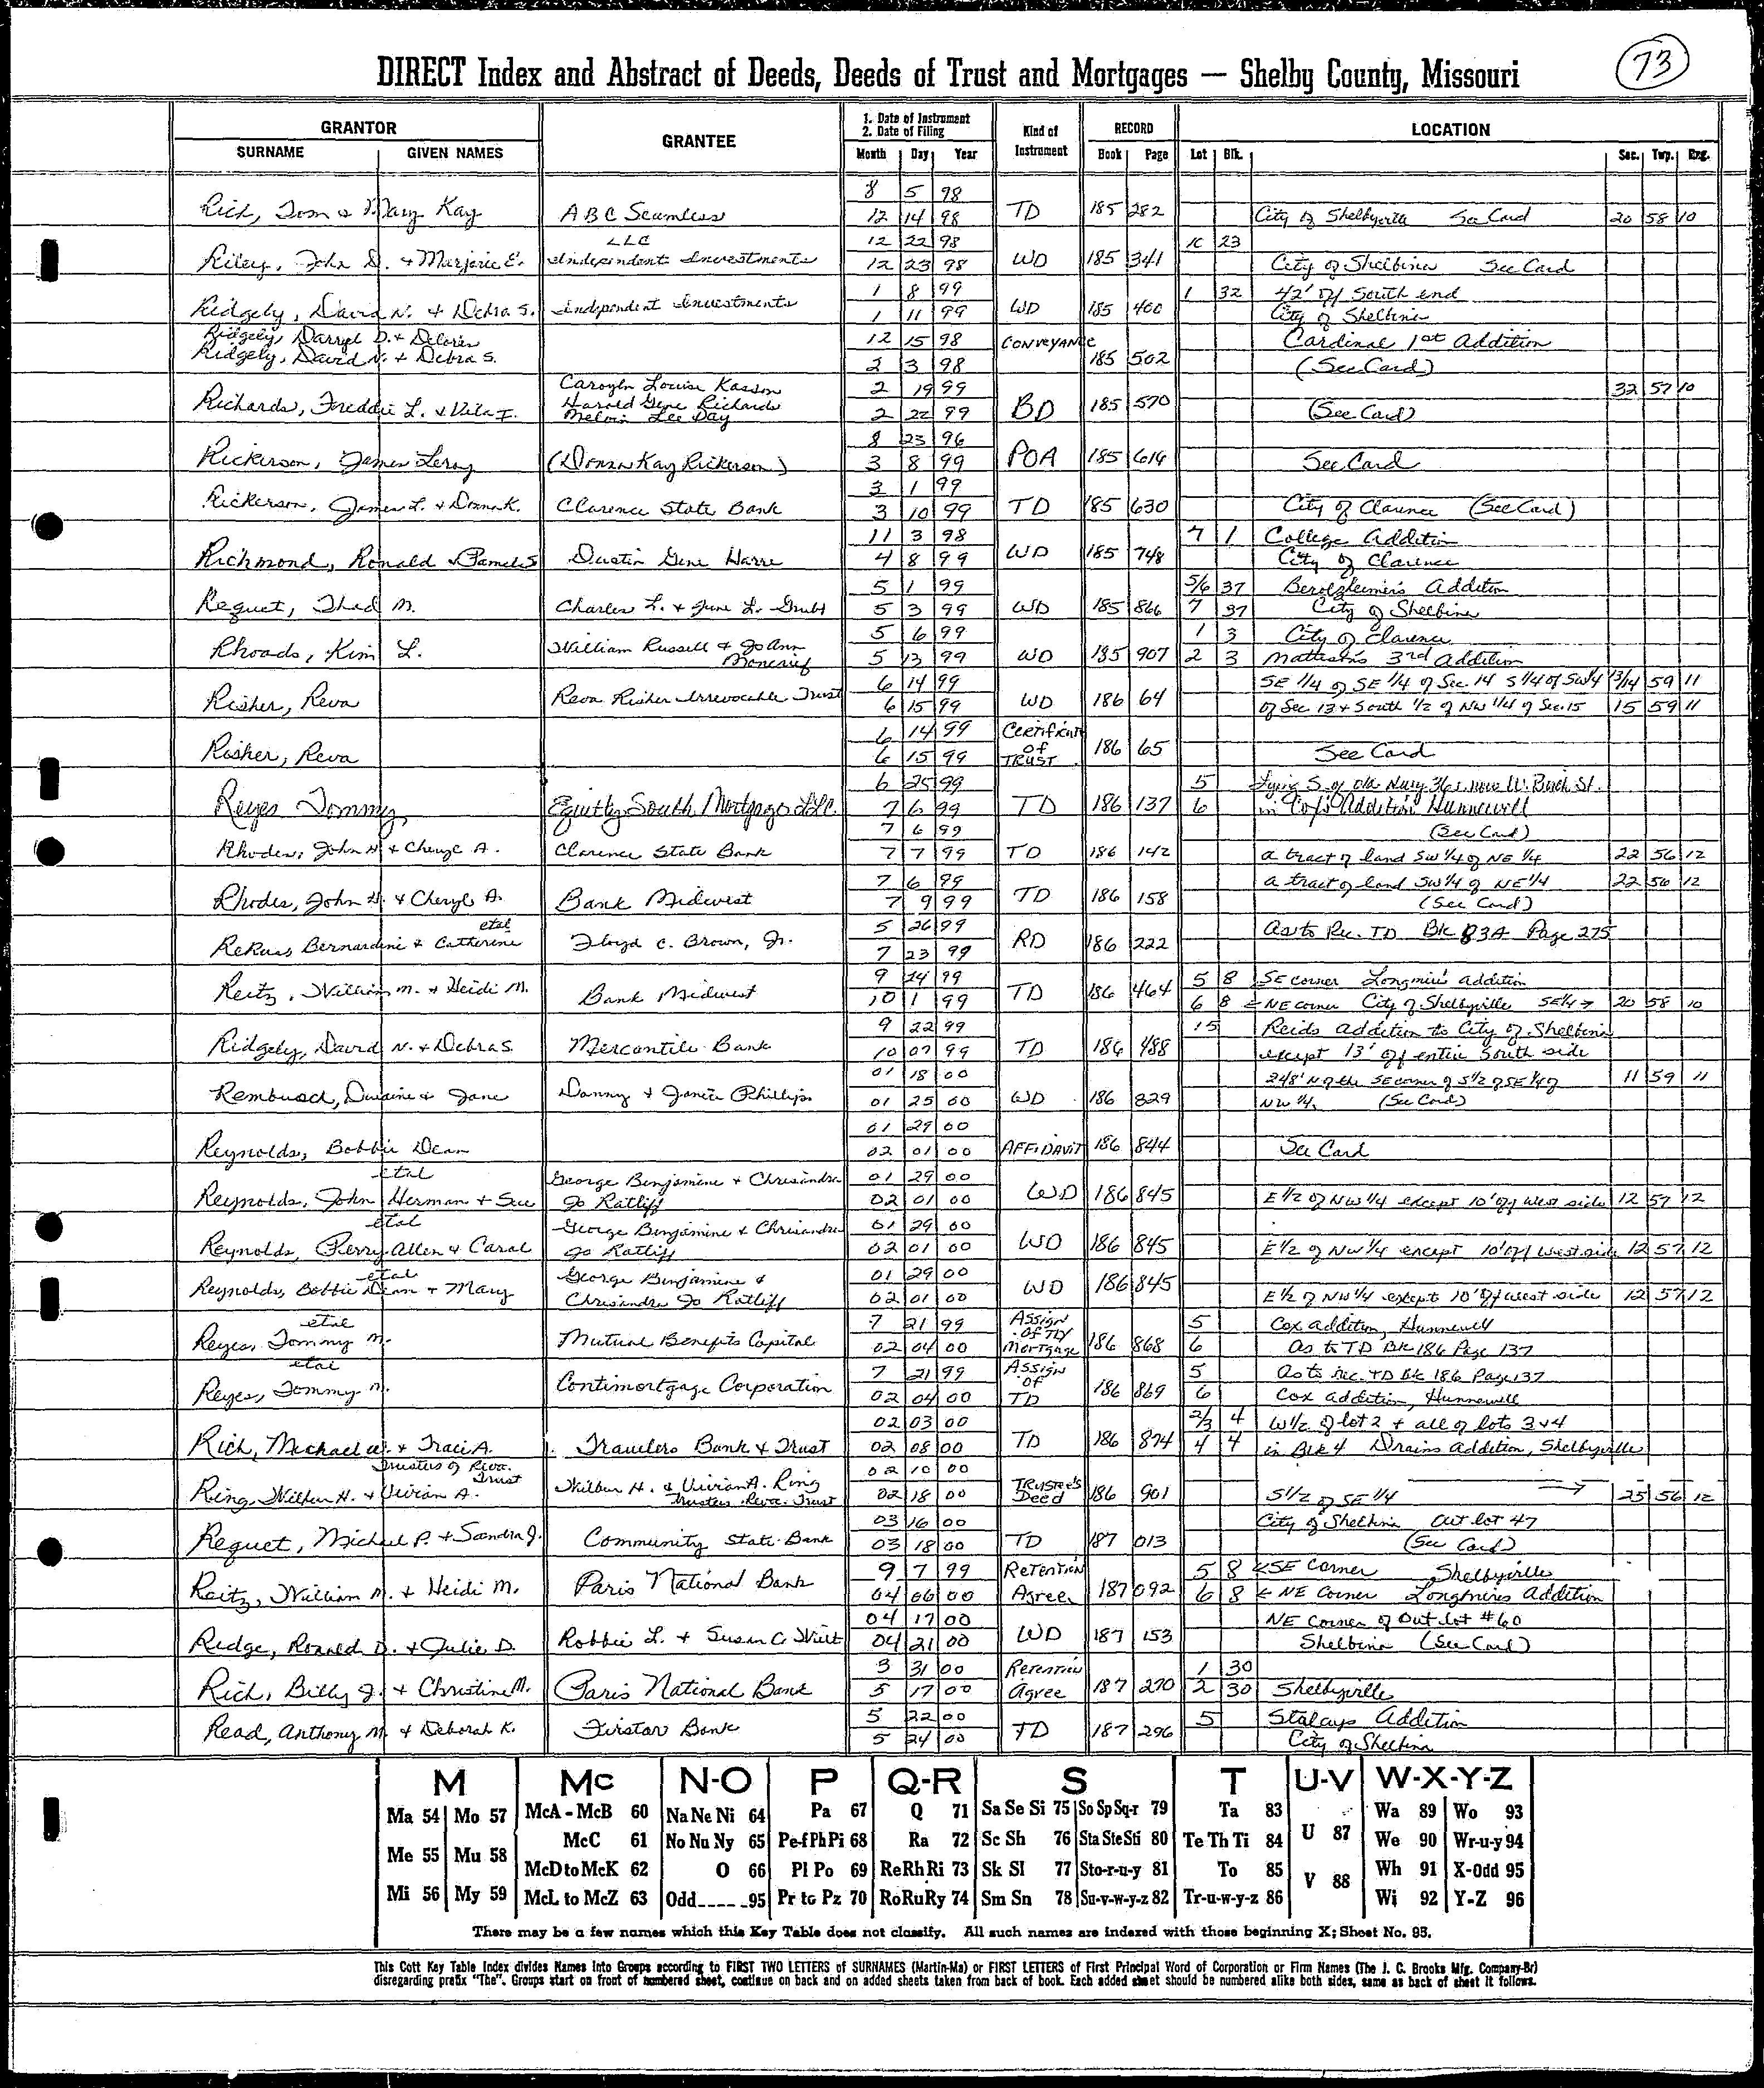 73
DIRECT Index and Abstract of Deeds, Deeds of Trust and Mortgages — Shelby County, Missouri
GRANTOR
SURNAME GIVEN NAMES
GRANTEE
1. Date of Instrument
2. Date of Filing
Month Day Year
Kind of Instrument
RECORD
Book Page
LOCATION
Lot Blk. Sec. Twp. Rng.
8 5 98
Rich, Tom & Mary Kay ABC Seamless 12 14 98 TD 185 282 City of Shelbyville See Card 20 58 10
LLC 12 22 98 23
Riley, John D. & Marjorie E. Independent Investments 12 23 98 WD 185 341 City of Shelbina See Card
1 8 99 1 32 42' off South end
Ridgely, David N. & Debra S. Independent Investments 1 11 99 WD 185 400 City of Shelbina
Ridgely, Darryl D. & Delores 12 15 98 CONVEYANCE Cardinal 1st Addition
Ridgely, David N. & Debra S. 2 3 98 185 502 (See Card)
Carogln Louise Kasson 2 19 99 32 57 10
Richards, Freddie L. & Vila I. Harold Gene Richards BD 185 570
Melvin Lee Day 2 22 99 (See Card)
8 23 96
Rickerson, James Leroy (Donna Kay Rickerson) 3 8 99 POA 185 614 See Card
3 1 99
Rickerson, James L. & Donna K. Clarence State Bank 3 10 99 TD 185 630 City of Clarence (See Card)
11 3 98 7 1 College Addition
Richmond, Ronald & Pamela S Dustin Gene Harre 4 8 99 WD 185 748 City of Clarence
5 1 99 5/6 37 Berolzheimer's Addition
Requet, Thad M. Charles L. & June L. 5 3 99 WD 185 866 7 37 City of Shelbina
5 6 99 1 3 City of Clarence
Rhoads, Kim L. William Russell & Jo Ann Moncrief 5 13 99 WD 185 907 2 3 3rd Addition
6 14 99 SE 1/4 of SE 1/4 of Sec 14 S 1/4 of SW 1/4 13/14 59 11
Risher, Reva Reva Risher Irrevocable Trust 6 15 99 WD 186 64 of Sec 13 & South 1/2 of NW 1/4 of Sec. 15 15 59 11
6 14 99 Certificate
Risher, Reva of TRUST 6 15 99 186 65 See Card
6 25 99 5 Lying S of old Hwy 36, now W. Birch St.
Reyes Tommy Equitly South Mortgage LLC. 7 6 99 TD 186 137 6 in Cox's Addition Hunnewell
7 6 99 (See Card)
Rhodes, John H & Cheryl A. Clarence State Bank 7 7 99 TD 186 142 a tract of land SW 1/4 of NE 1/4 22 56 12
7 6 99 a tract of land SW 1/4 of NE 1/4 22 56 12
Rhodes, John H. & Cheryl A. Bank Midwest 7 9 99 TD 186 158 (See Card)
etal 5 26 99 As to Rec. TD Bk 83A Page 275
Bernardine & Catherine Floyd C. Brown, Jr. 7 23 99 RD 186 222
9 24 99 5 8 SE corner Longmire's addition
Reitz, William M. & Heidi M. Bank Midwest 10 1 99 TD 186 464 6 8 ← NE corner City of Shelbyville SE 1/4 → 20 58 10
9 22 99 15 Reids addition to City of Shelbina
Ridgely, David N. & Debra S. Mercantile Bank 10 07 99 TD 186 488 except 13' off entire South side
01 18 00 248' N of the SE corner of S 1/2 of SE 1/4 of 11 59 11
Rembusch, Dwaine & Jane Danny & Janice Phillips 01 25 00 WD 186 829 NW 1/4. (See Card)
01 29 00
Reynolds, Bobbie Dean 02 01 00 AFFIDAVIT 186 844 See Card
etal George Benjamine & Chrisandra 01 29 00
Reynolds, John Herman & Sue Jo Ratliff 02 01 00 WD 186 845 E 1/2 of NW 1/4 except 10' off west side 12 57 12
etal George Benjamine & Chrisandra 01 29 00
Reynolds, Perry Allen & Carol Jo Ratliff 02 01 00 WD 186 845 E 1/2 of NW 1/4 except 10' off west side 12 57 12
etal George Benjamine & 01 29 00
Reynolds, Bobbie Dean & Mary Chrisandra Jo Ratliff 02 01 00 WD 186 845 E 1/2 of NW 1/4 except 10' off west side 12 57 12
etal 7 21 99 Assign of 5 Cox addition, Hunnewell
Reyes, Tommy M. Mutual Benefits Capital 02 04 00 Mortgage 186 868 6 As to TD Bk 186 Page 137
etal 7 21 99 Assign of 5 As to rec. TD Bk 186 Page 137
Reyes, Tommy M. Contimortgage Corporation 02 04 00 TD 186 869 6 Cox addition, Hunnewell
02 03 00 2/3 4 W 1/2 of lot 2 & all of lots 3 & 4
Rich, Michael W. & Traci A. Travelers Bank & Trust 02 08 00 TD 186 874 4 4 in Blk 4 Drains addition, Shelbyville
Trustees of Revo. Trust 02 10 00
Ring, Wilbur H. & Vivian A. Wilbur H. & Vivian A. Ring Trustees Revo. Trust 02 18 00 Trustee's Deed 186 901 S 1/2 of SE 1/4 → 25 56 12
03 16 00 City of Shelbina Out lot 47
Requet, Michael P. & Sandra J. Community State Bank 03 18 00 TD 187 013 (See Card)
9 7 99 Retention 5 8 ← SE Corner Shelbyville
Reitz, William M. & Heidi M. Paris National Bank 04 06 00 Agree. 187 092 6 8 ← NE Corner Longmires Addition
04 17 00 NE Corner of Out lot #60
Ridge, Ronald D. & Julie D. Robbie L. & Susan C. 04 21 00 WD 187 153 Shelbina (See Card)
3 31 00 Retention 1 30
Rich, Billy J. & Christine M. Paris National Bank 5 17 00 Agree 187 270 2 30 Shelbyville
5 22 00 5 Stalcups Addition
Read, Anthony M. & Deborah K. Firstar Bank 5 24 00 TD 187 296 City of Shelbina
M Mc N-O P Q-R S T U-V W-X-Y-Z
Ma 54 Mo 57 McA - McB 60 Na Ne Ni 64 Pa 67 Q 71 Sa Se Si 75 So Sp Sq-r 79 Ta 83 U 87 Wa 89 Wo 93
Me 55 Mu 58 McC 61 No Nu Ny 65 Pe-f Ph Pi 68 Ra 72 Sc Sh 76 Sta Ste Sti 80 Te Th Ti 84 We 90 Wr-u-y 94
McD to McK 62 O 66 Pl Po 69 Re Rh Ri 73 Sk Sl 77 Sto-r-u-y 81 To 85 V 88 Wh 91 X-Odd 95
Mi 56 My 59 McL to McZ 63 Odd 95 Pr to Pz 70 Ro Ru Ry 74 Sm Sn 78 Su-v-w-y-z 82 Tr-u-w-y-z 86 Wi 92 Y-Z 96
There may be a few names which this Key Table does not classify. All such names are indexed with those beginning X; Sheet No. 95.
This Cott Key Table Index divides Names Into Groups according to FIRST TWO LETTERS of SURNAMES (Martin-Ma) or FIRST LETTERS of First Principal Word of Corporation or Firm Names (The J. C. Brooks Mfg. Company-Br)
disregarding prefix "The". Groups start on front of numbered sheet, continue on back and on added sheets taken from back of book. Each added sheet should be numbered alike both sides, same as back of sheet it follows.